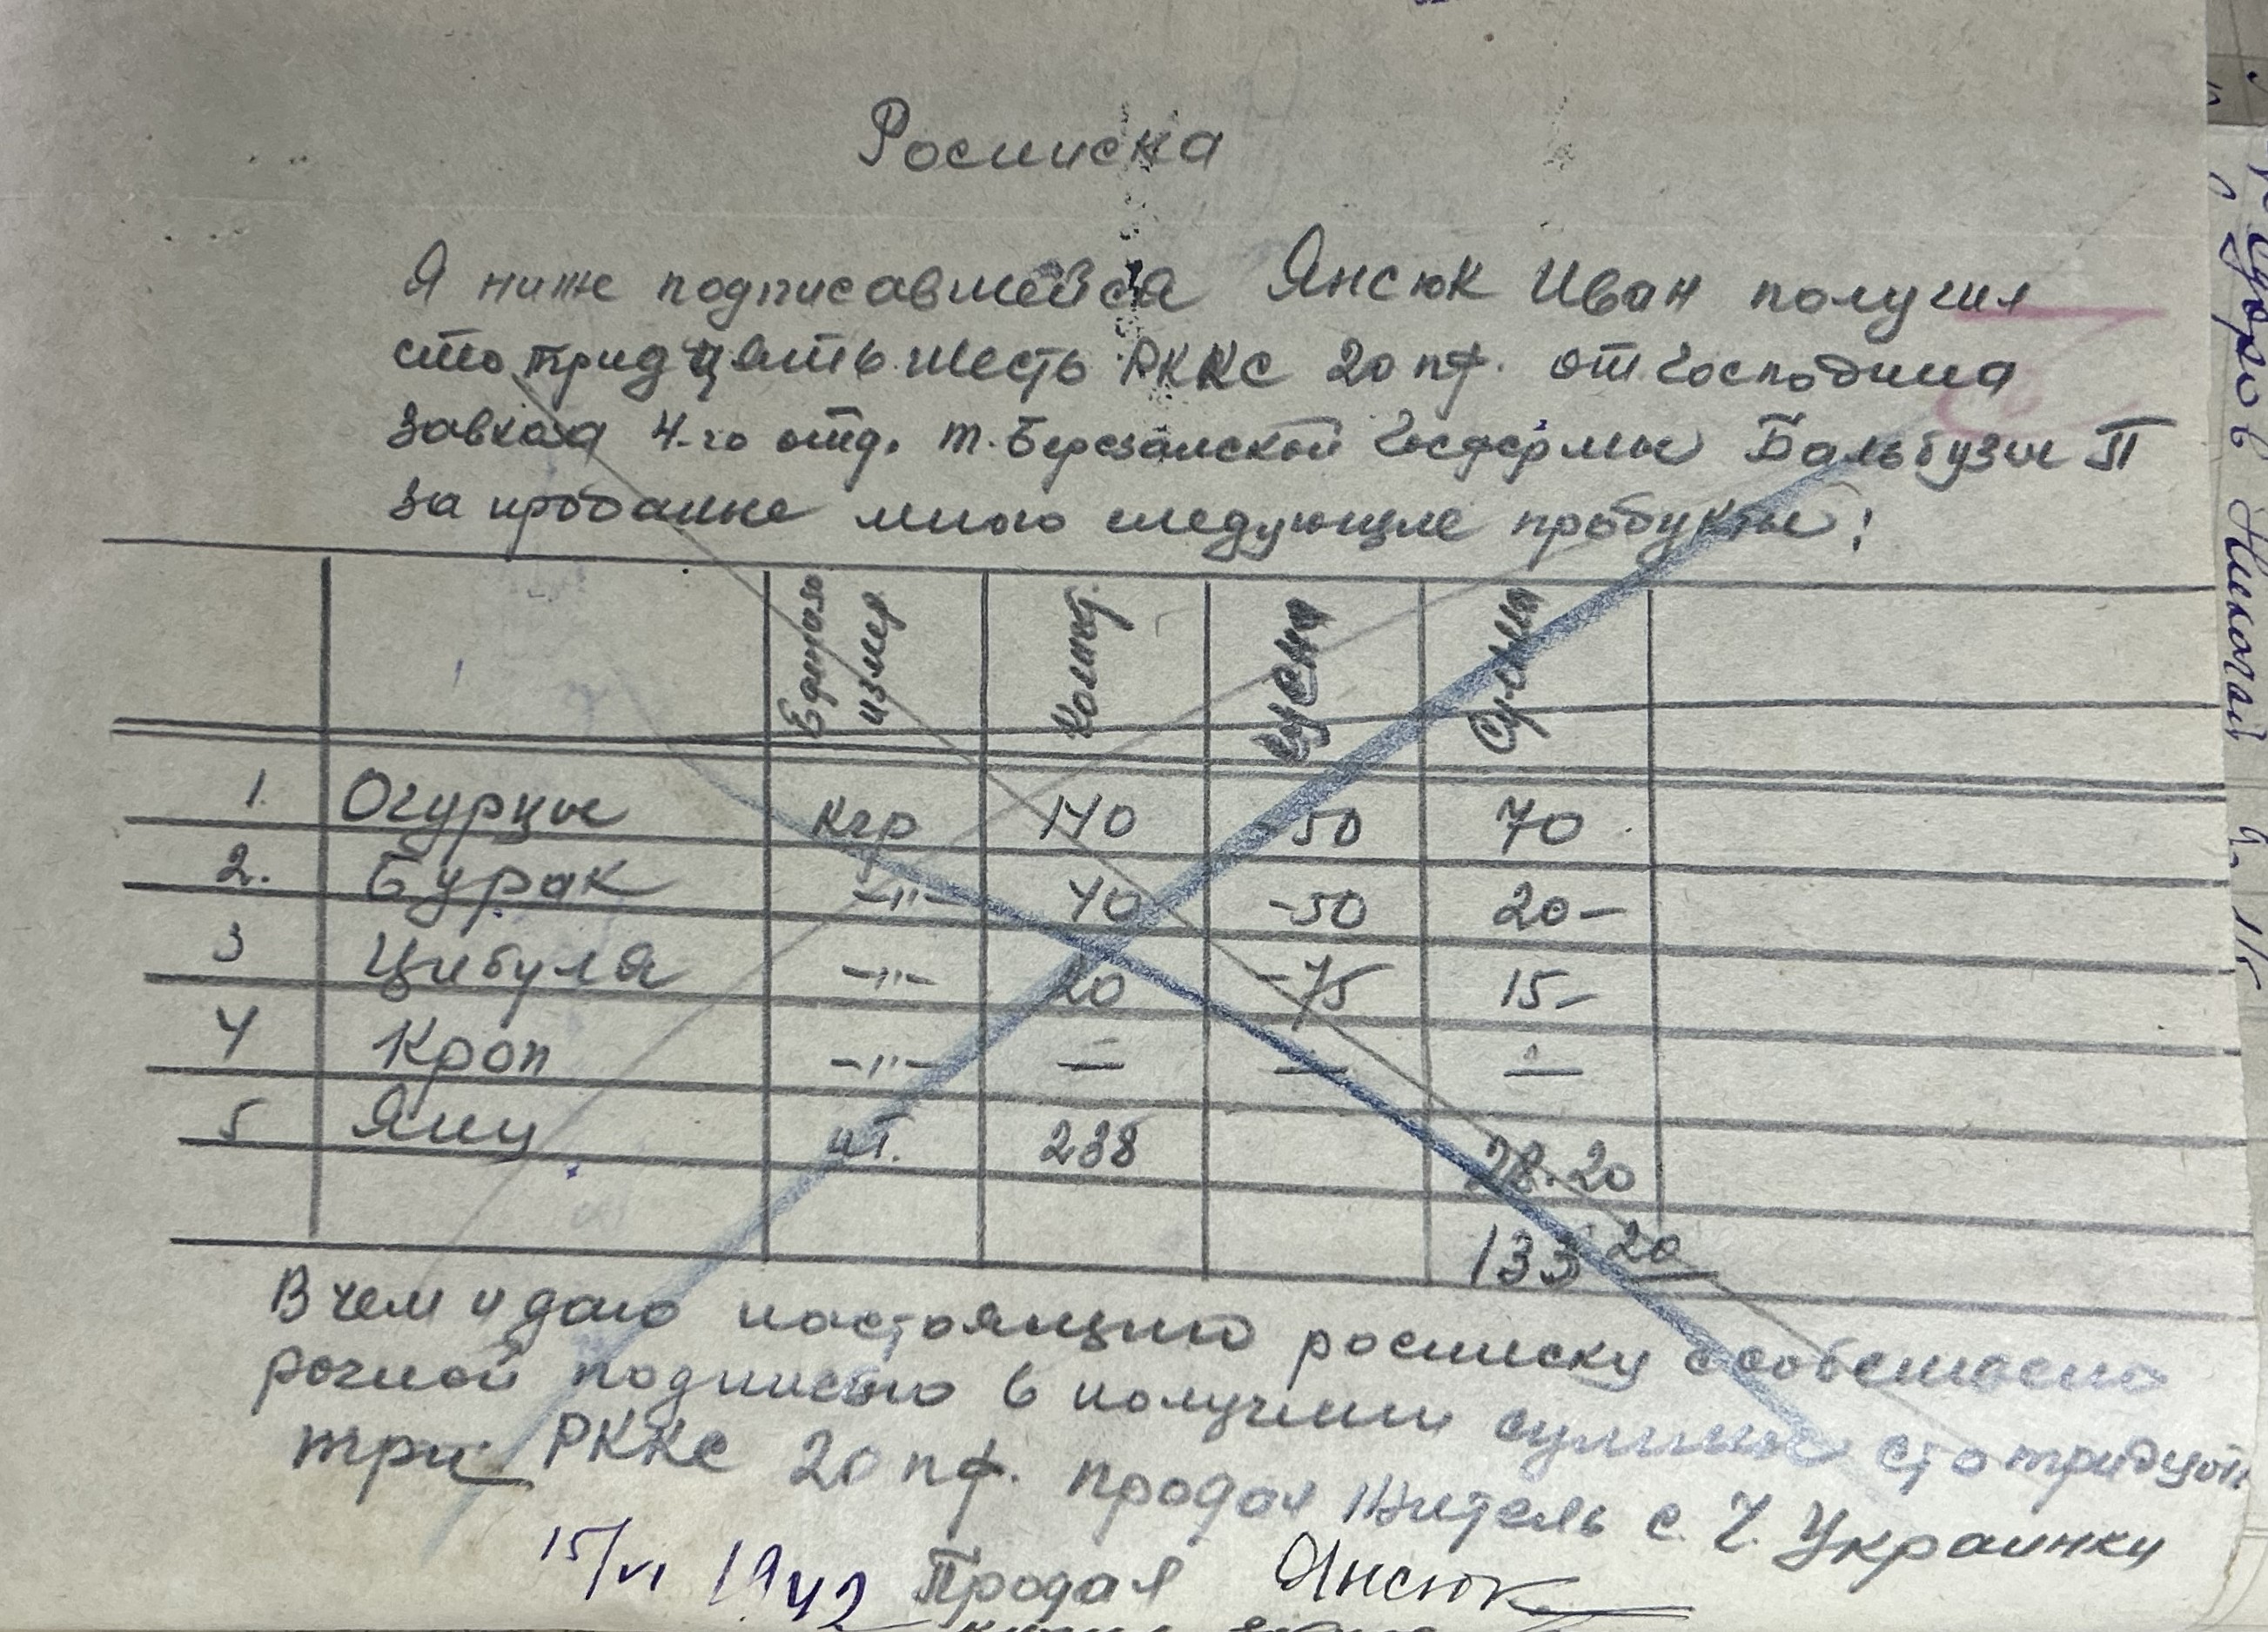 Росписка
Я ниже подписавшейся Янсюк Иван получил
сто тридцять шесть РККС 20 пф. от Господина
завхоза 4-го отд. т. Березанской Госфермы Бальбузы П
за проданые мною следующие продукты:
Единиц измер Колич. Цена Сумма
1. Огурцы кгр 140 -50 70
2. Бурак -"- 40 -50 20-
3 Цибуля -"- 20 -75 15-
4 Кроп -"- — — —
5 Яиц шт. 238 28.20
133 20
В чем и даю настоящую росписку особствено
рочной подписью в получении суммы сто тридцять
три РККС 20 пф. продал житель с. Ч. Украинки
15/VI 1942 Продал Янсюк